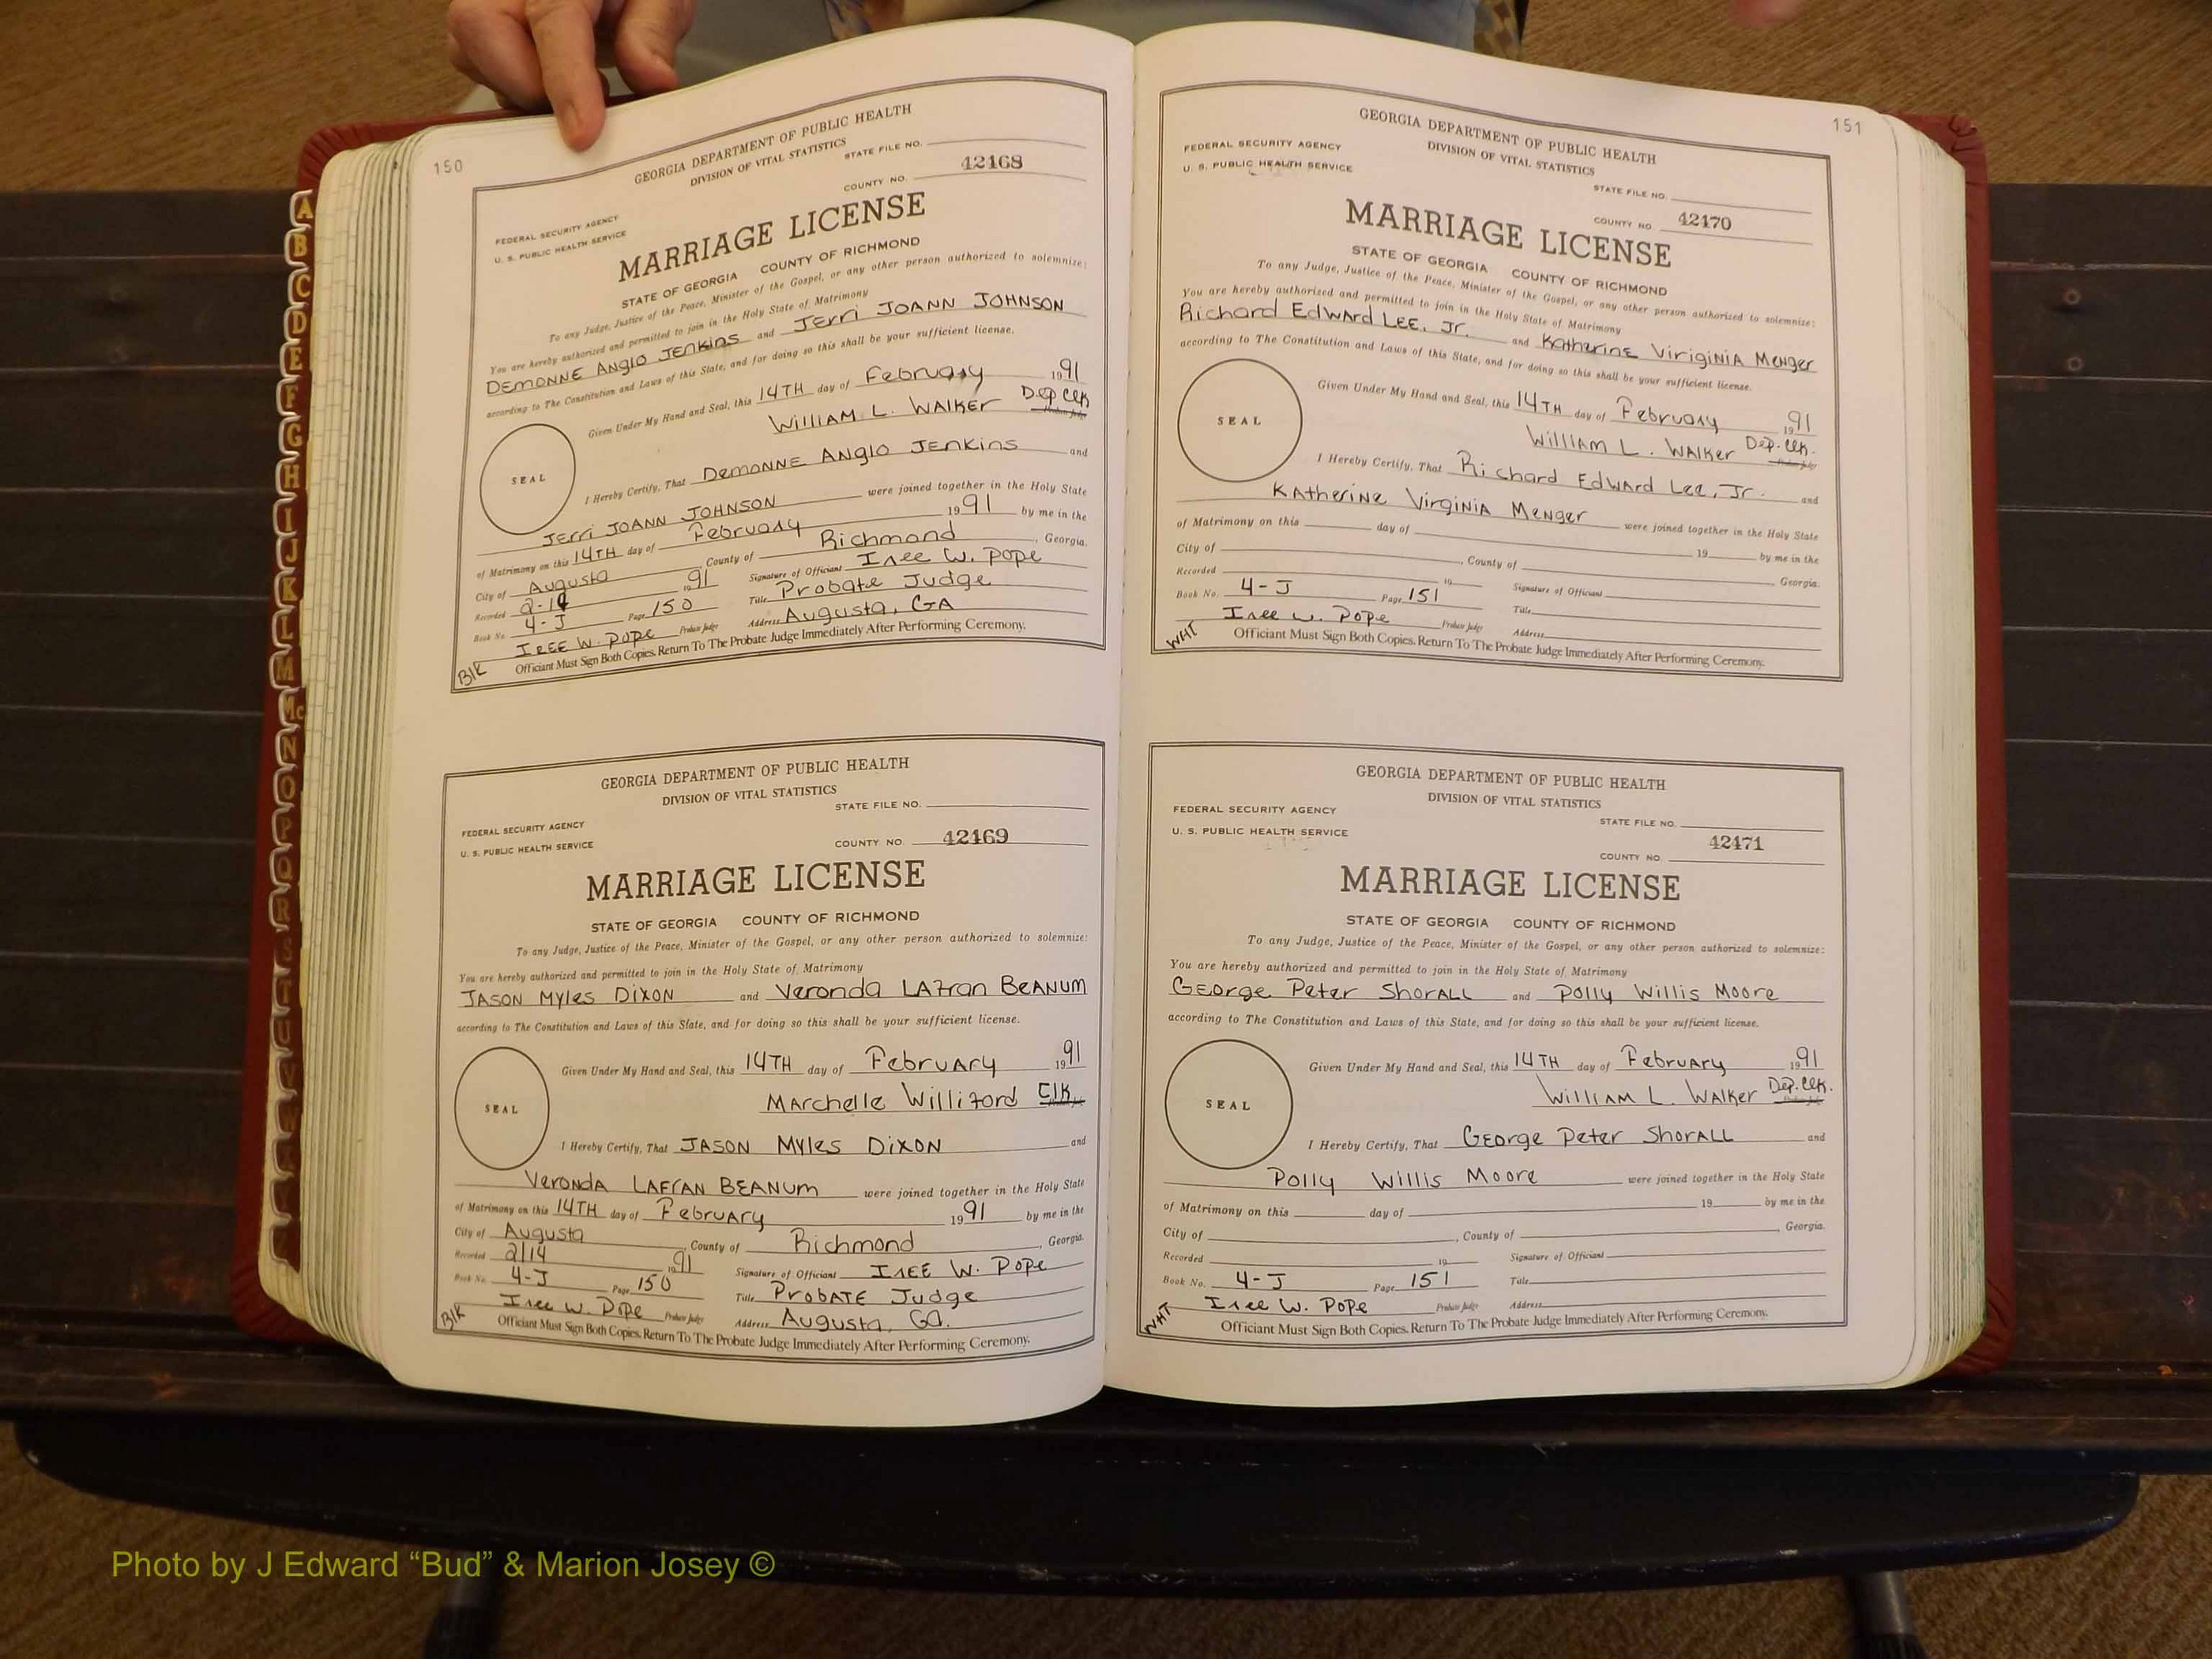 150
GEORGIA DEPARTMENT OF PUBLIC HEALTH
DIVISION OF VITAL STATISTICS
STATE FILE NO.
COUNTY NO. 42168
FEDERAL SECURITY AGENCY
U. S. PUBLIC HEALTH SERVICE
MARRIAGE LICENSE
STATE OF GEORGIA COUNTY OF RICHMOND
To any Judge, Justice of the Peace, Minister of the Gospel, or any other person authorized to solemnize:
You are hereby authorized and permitted to join in the Holy State of Matrimony
DEMONNE ANGlO JENKiNS and JErri JOANN JOHNSON
according to The Constitution and Laws of this State, and for doing so this shall be your sufficient license.
Given Under My Hand and Seal, this 14TH day of February 1991
WilliAM L. WAlKEr Dep Clk
SEAL
I Hereby Certify, That DemONNE ANGlO JENKiNS and
JErri JOANN JOHNSON were joined together in the Holy State
of Matrimony on this 14TH day of February 1991 by me in the
City of Augusta, County of Richmond, Georgia.
Recorded 2-14 1991 Signature of Officiant ISEE W. POPE
Book No. 4-J Page 150 Title Probate Judge
ISEE W. POPE Probate Judge Address Augusta, GA
BlK Officiant Must Sign Both Copies. Return To The Probate Judge Immediately After Performing Ceremony.
GEORGIA DEPARTMENT OF PUBLIC HEALTH
DIVISION OF VITAL STATISTICS
STATE FILE NO.
FEDERAL SECURITY AGENCY
U. S. PUBLIC HEALTH SERVICE
COUNTY NO. 42169
MARRIAGE LICENSE
STATE OF GEORGIA COUNTY OF RICHMOND
To any Judge, Justice of the Peace, Minister of the Gospel, or any other person authorized to solemnize:
You are hereby authorized and permitted to join in the Holy State of Matrimony
JASON Myles DixON and Veronda LAFran BEANUM
according to The Constitution and Laws of this State, and for doing so this shall be your sufficient license.
Given Under My Hand and Seal, this 14TH day of February 1991
MArchelle Williford Clk
SEAL
I Hereby Certify, That JASON Myles DixON and
VeroNDA LAFrAN BEANUM were joined together in the Holy State
of Matrimony on this 14TH day of February 1991 by me in the
City of Augusta, County of Richmond, Georgia.
Recorded 2/14 1991 Signature of Officiant ISEE W. POPE
Book No. 4-J Page 150 Title ProbATE Judge
Isee W. Pope Probate Judge Address Augusta, Ga.
BlK Officiant Must Sign Both Copies. Return To The Probate Judge Immediately After Performing Ceremony.
151
GEORGIA DEPARTMENT OF PUBLIC HEALTH
DIVISION OF VITAL STATISTICS
FEDERAL SECURITY AGENCY
U. S. PUBLIC HEALTH SERVICE
STATE FILE NO.
COUNTY NO. 42170
MARRIAGE LICENSE
STATE OF GEORGIA COUNTY OF RICHMOND
To any Judge, Justice of the Peace, Minister of the Gospel, or any other person authorized to solemnize:
You are hereby authorized and permitted to join in the Holy State of Matrimony
Richard EDWARD LEE, Jr. and KAtherinE VirigiNiA Menger
according to The Constitution and Laws of this State, and for doing so this shall be your sufficient license.
Given Under My Hand and Seal, this 14TH day of February 1991
WilliAM L. WAlker Dep. Clk.
SEAL
I Hereby Certify, That Richard Edward Lee, Jr. and
KAtheriNE VirgiNiA Menger were joined together in the Holy State
of Matrimony on this day of 19 by me in the
City of , County of Georgia.
Recorded 19 Signature of Officiant
Book No. 4-J Page 151 Title
Isee W. Pope Probate Judge Address
WHT Officiant Must Sign Both Copies. Return To The Probate Judge Immediately After Performing Ceremony.
GEORGIA DEPARTMENT OF PUBLIC HEALTH
DIVISION OF VITAL STATISTICS
FEDERAL SECURITY AGENCY
U. S. PUBLIC HEALTH SERVICE
STATE FILE NO.
COUNTY NO. 42171
MARRIAGE LICENSE
STATE OF GEORGIA COUNTY OF RICHMOND
To any Judge, Justice of the Peace, Minister of the Gospel, or any other person authorized to solemnize:
You are hereby authorized and permitted to join in the Holy State of Matrimony
GEorge Peter ShorALL and Polly Willis Moore
according to The Constitution and Laws of this State, and for doing so this shall be your sufficient license.
Given Under My Hand and Seal, this 14TH day of February 1991
WilliAM L. WAlker Dep. Clk.
SEAL
I Hereby Certify, That GEorge Peter ShorALL and
Polly Willis Moore were joined together in the Holy State
of Matrimony on this day of 19 by me in the
City of , County of , Georgia.
Recorded 19 Signature of Officiant
Book No. 4-J Page 151 Title
Isee W. Pope Probate Judge Address
WHT Officiant Must Sign Both Copies. Return To The Probate Judge Immediately After Performing Ceremony.
A
B
C
D
E
F
G
H
I
J
K
L
M
Mc
N
O
P
Q
R
S
T
U
V
W
Photo by J Edward “Bud” & Marion Josey ©